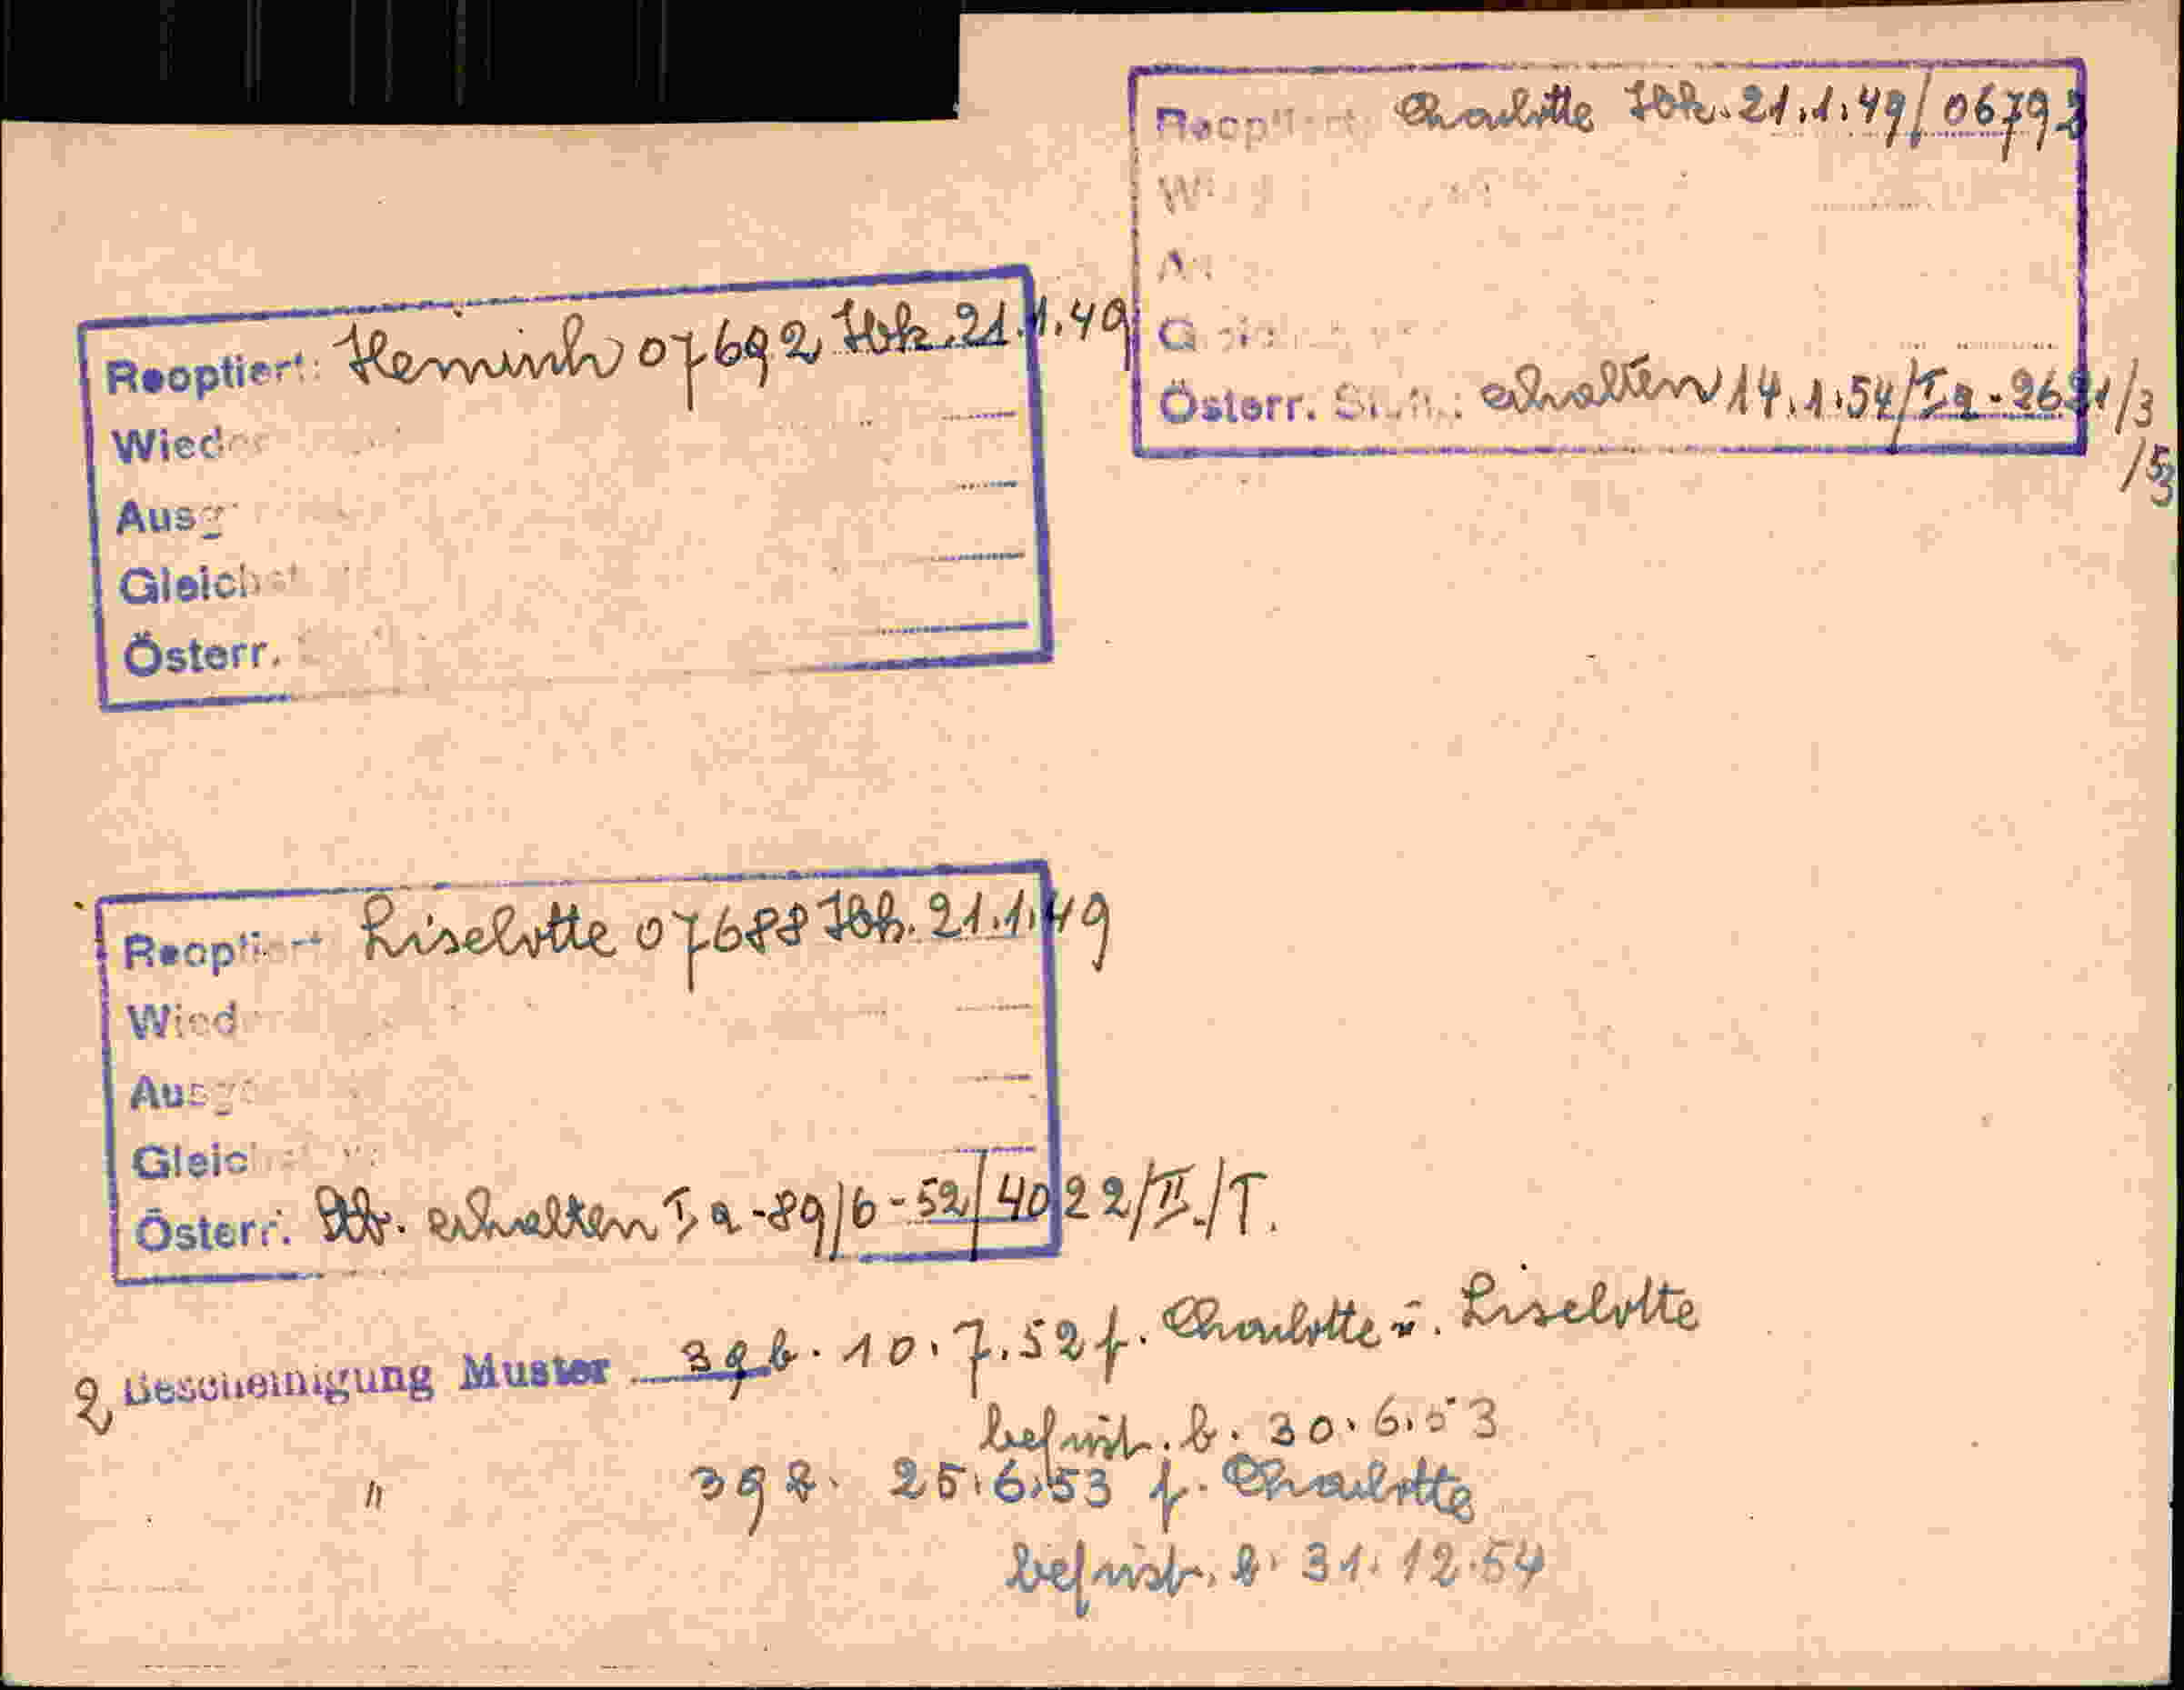 Reoptiert: Charlotte Ibk. 21.1.49/0679
Österr. erhalten 14.1.54/Ia-2631/3
/53
Reoptiert: Heinrich 07692 Ibk. 21.1.49
Wied
Ausg
Gleich
Österr.
Reopti Liselotte 07688 Ibk. 21.1.49
Wied
Ausg
Gleic
Österr. erhalten Ia-89/6-52/4022/II./T.
2 Bescheinigung Muster 39b. 10.7.52 f. Charlotte u. Liselotte
befrist. b. 30.6.53
" 39 25.6.53 f. Charlotte
befrist. b. 31.12.54